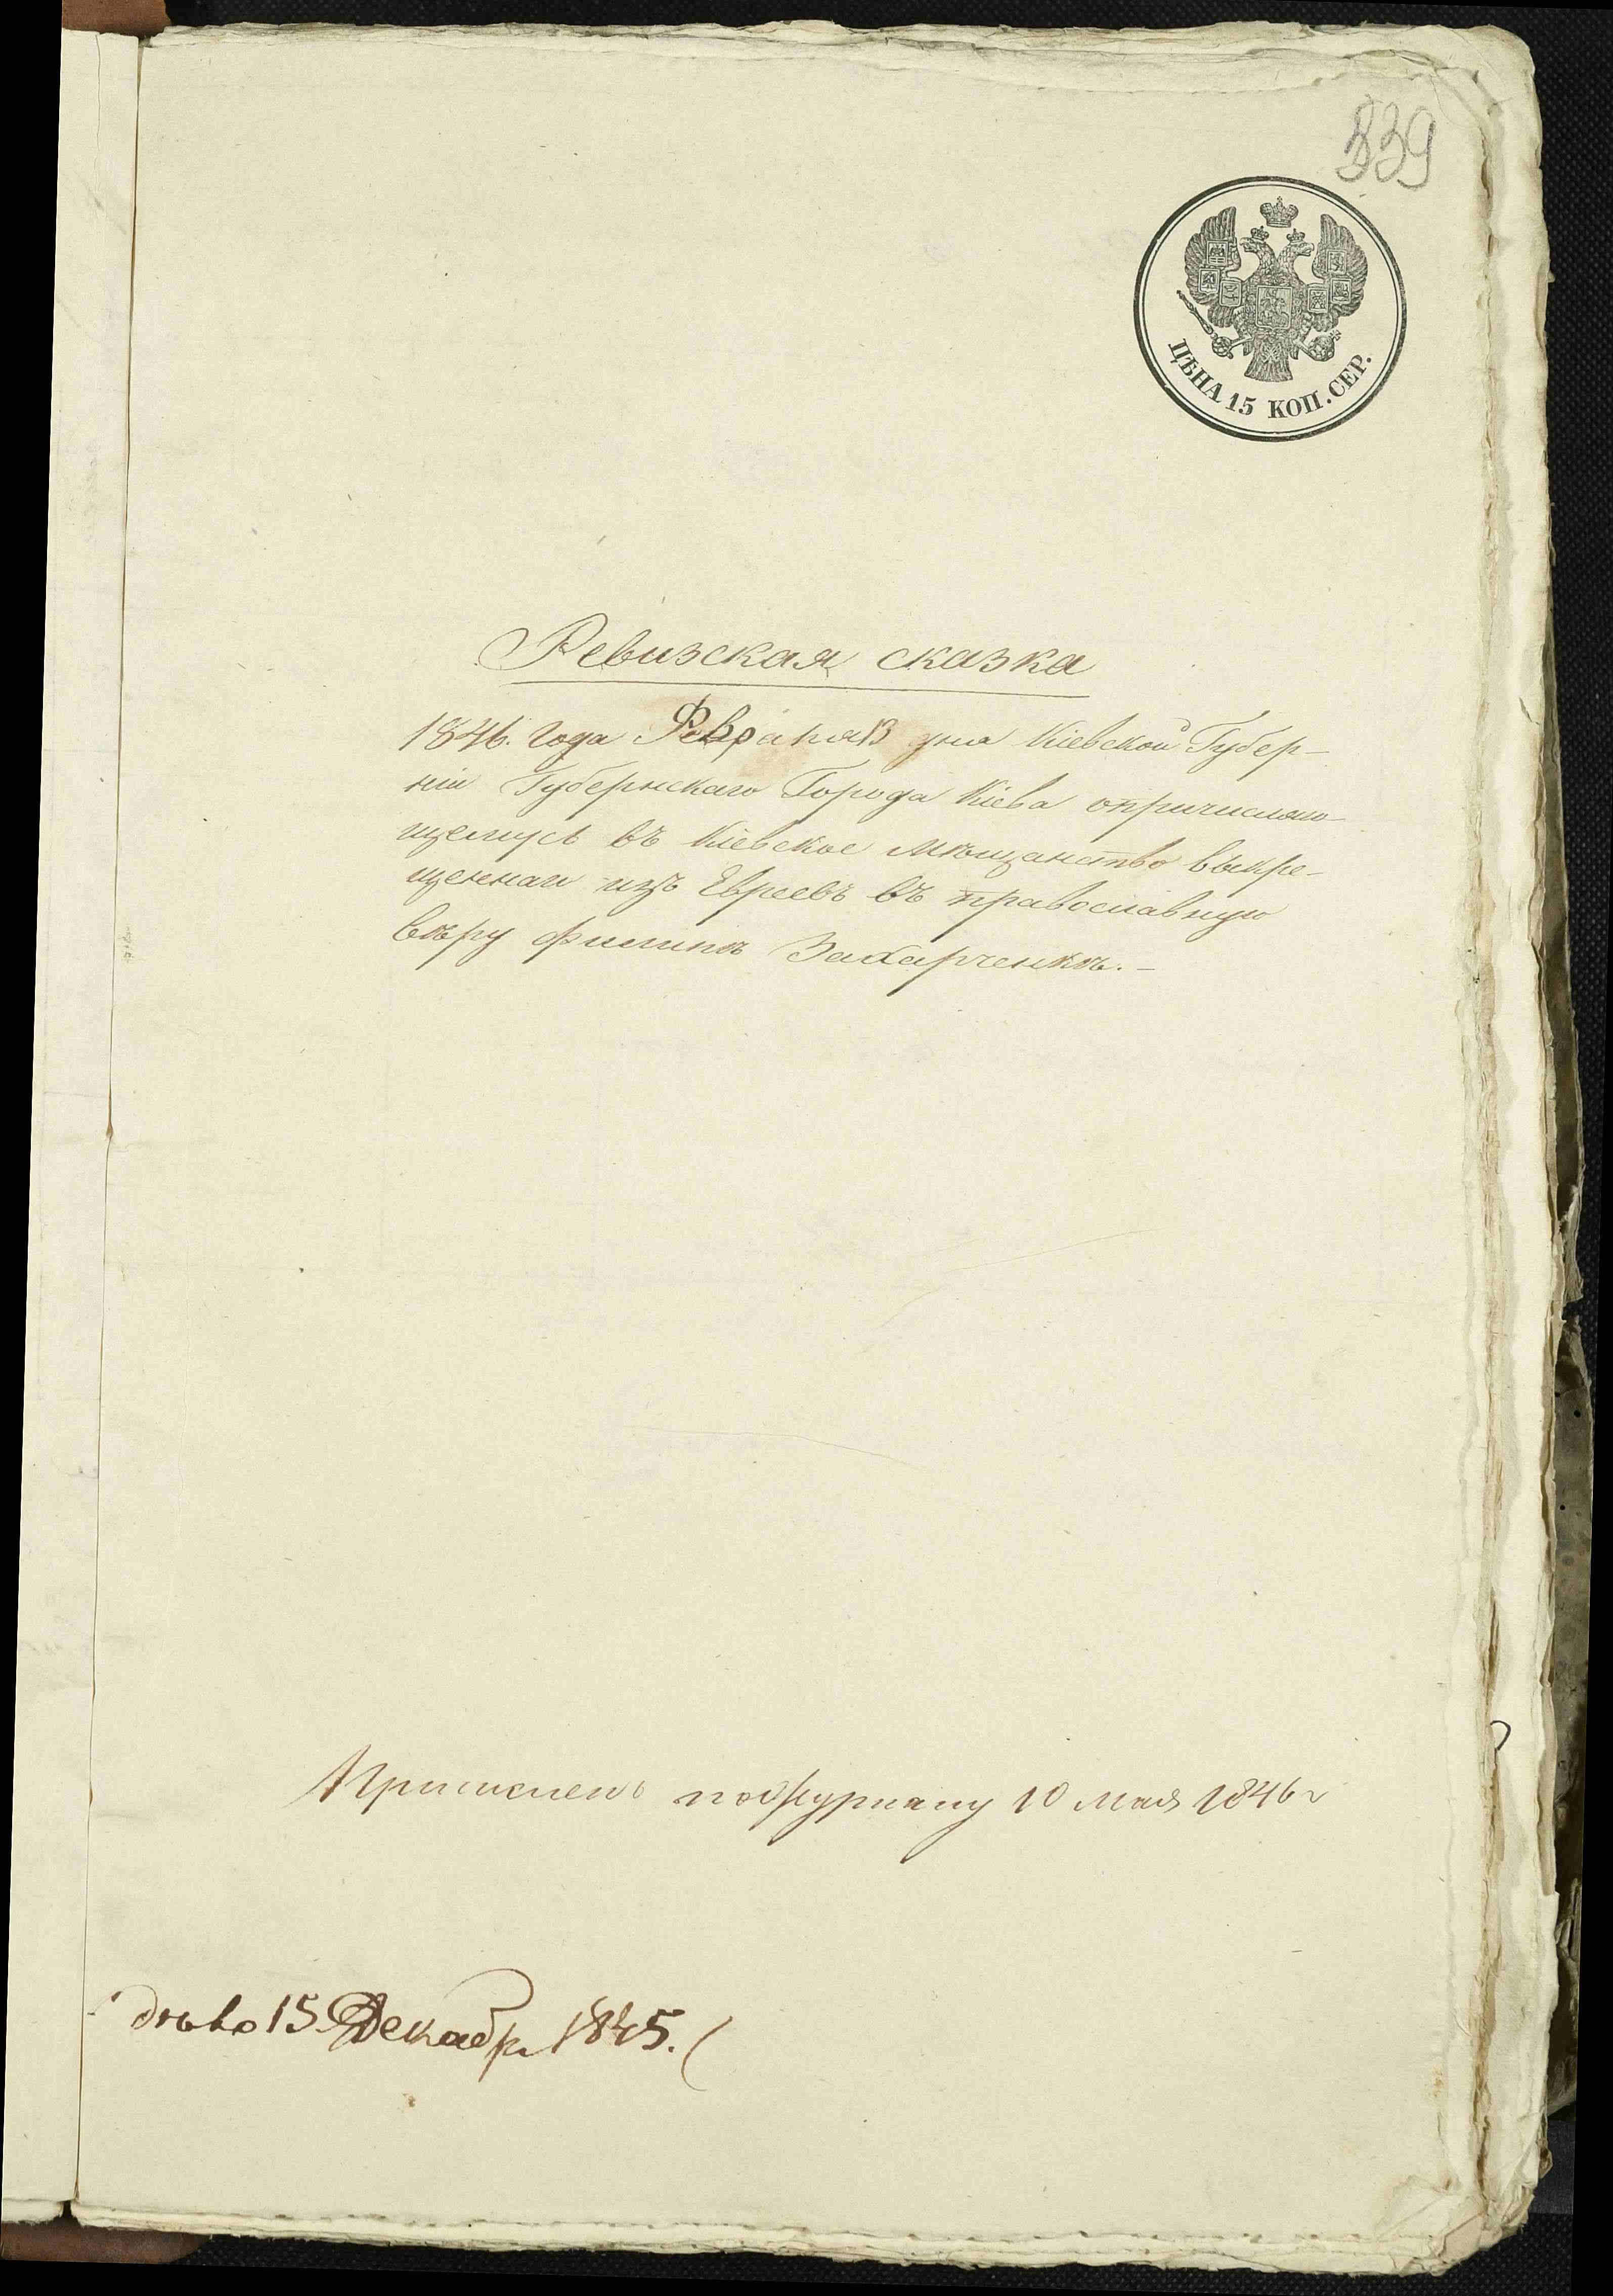 339
ЦѢНА 15 КОП. СЕР.
Ревизская сказка
1846. года Февраля 13 дня Кіевской Губер-
ніи Губернскаго Города Кіева опричисляю-
щемусь въ Кіевское Мѣщанство выкре-
щеннаи изъ Евреевъ въ православную
вѣру Филипѣ Захарченкѣ.-
Причисленъ по журналу 10 мая 1846 г
15 Декабр 1845.